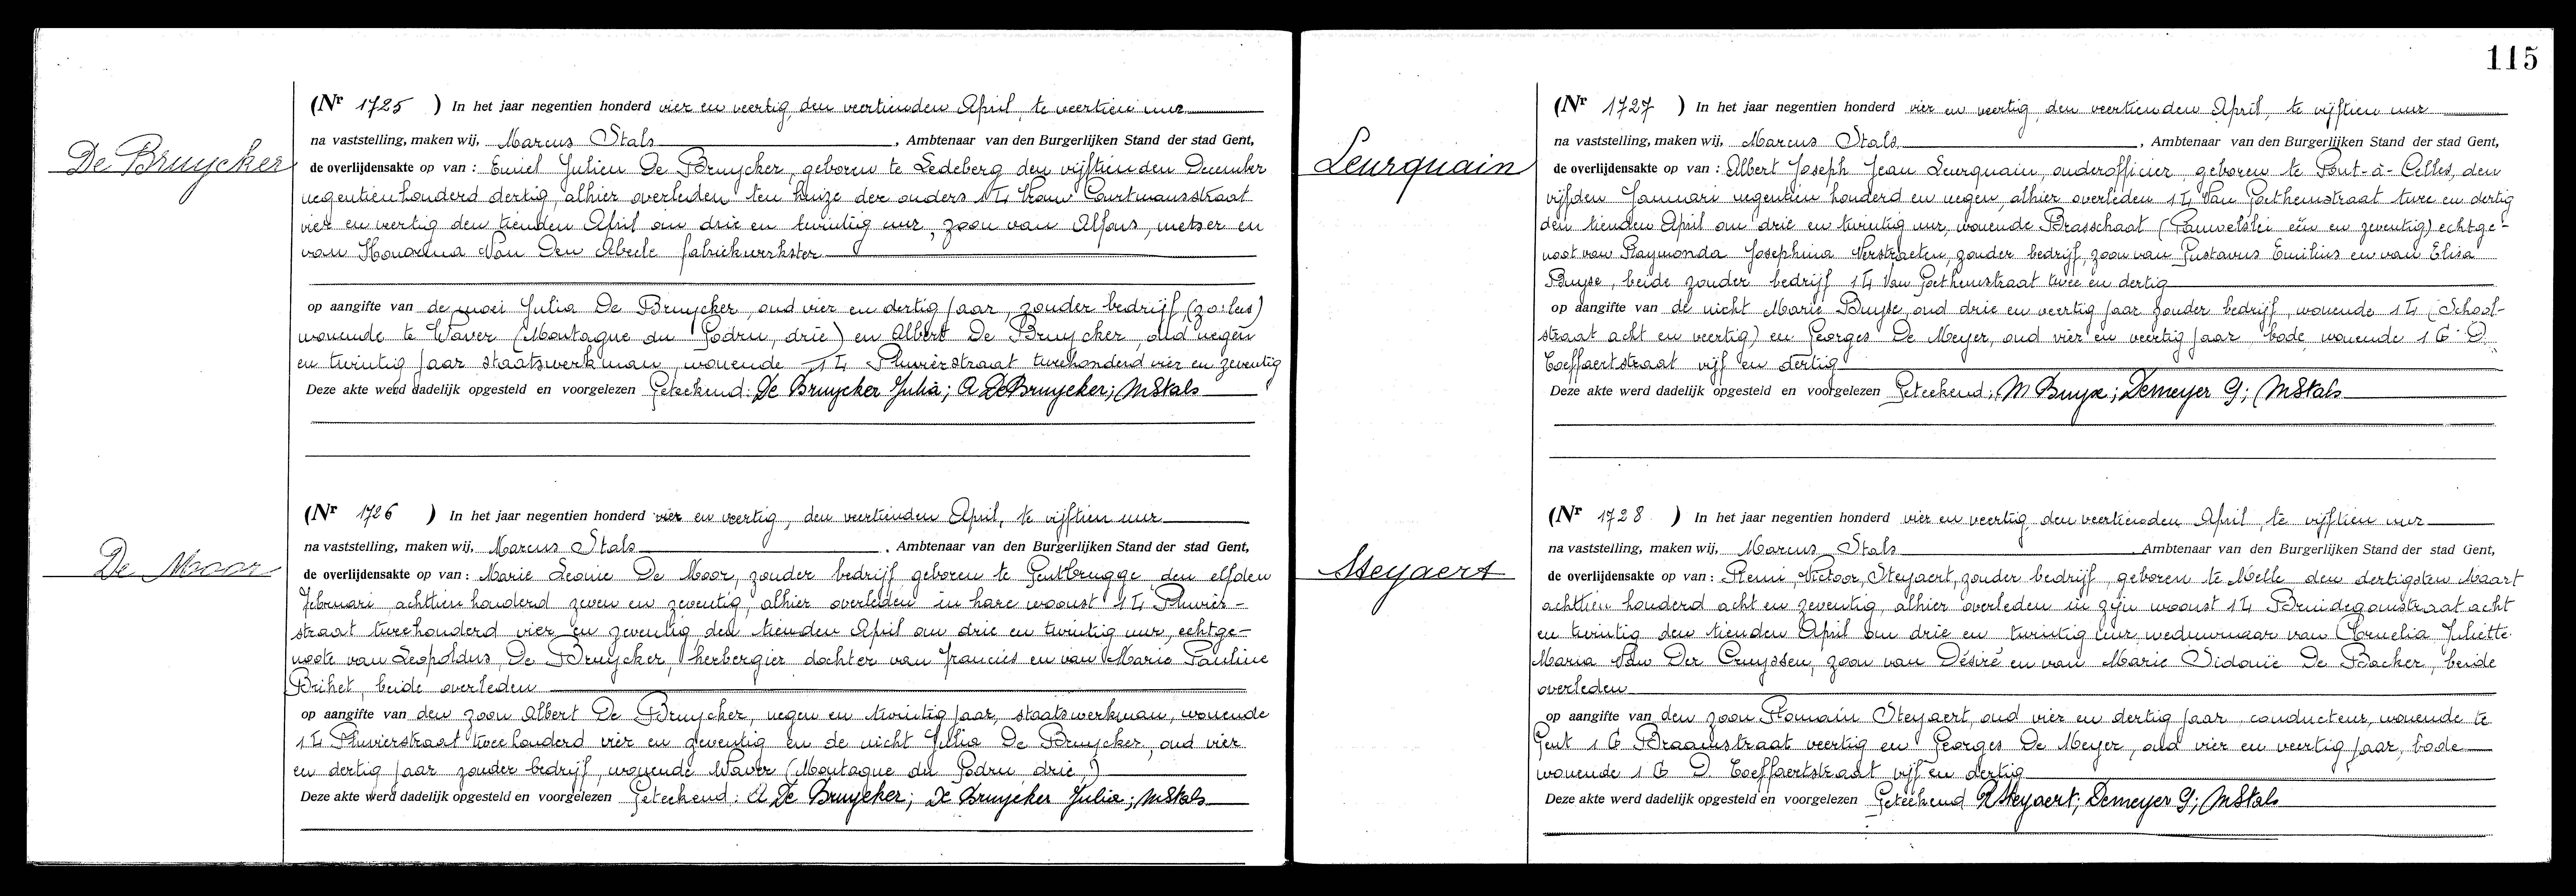 De Bruycker
(Nr 1725 ) In het jaar negentien honderd vier en veertig, den veertienden April, te veertien uur
na vaststelling, maken wij, Marcus Stals, Ambtenaar van den Burgerlijken Stand der stad Gent,
de overlijdensakte op van : Emiel Julien De Bruycker, geboren te Ledeberg den vijftienden December
negentienhonderd dertig, alhier overleden ten huize der ouders 14 Vrouw Courtmansstraat
vier en veertig den tienden April om drie en twintig uur, zoon van Alfons, metser en
van Honorina Van Den Abeele fabriekwerkster
op aangifte van de moei Julia De Bruycker, oud vier en dertig jaar, zonder bedrijf (zo:les)
wonende te Waver (Montagne du Godru, drie) en Albert De Bruycker, oud negen
en twintig jaar staatswerkman, wonende 14 Pluvierstraat tweehonderd vier en zeventig
Deze akte werd dadelijk opgesteld en voorgelezen Geteekend: De Bruycker Julia; A De Bruycker; MStals
De Moor
(Nr 1726 ) In het jaar negentien honderd vier en veertig, den veertienden April, te vijftien uur
na vaststelling, maken wij, Marcus Stals, Ambtenaar van den Burgerlijken Stand der stad Gent,
de overlijdensakte op van : Marie Leonie De Moor, zonder bedrijf geboren te Gentbrugge den elfden
Februari achttien honderd zeven en zeventig, alhier overleden in hare woonst 14 Pluvier-
straat tweehonderd vier en zeventig den tienden April om drie en twintig uur, echtge-
noote van Leopoldus De Bruycker, herbergier dochter van Francies en van Marie Pauline
Brihet, beide overleden
op aangifte van den zoon Albert De Bruycker, negen en twintig jaar, staatswerkman, wonende
14 Pluvierstraat twee honderd vier en zeventig en de nicht Julia De Bruycker, oud vier
en dertig jaar zonder bedrijf, wonende Waver (Montagne du Godru drie)
Deze akte werd dadelijk opgesteld en voorgelezen Geteekend: A De Bruycker; De Bruycker Julia; MStals
115
Leurquain
(Nr 1727 ) In het jaar negentien honderd vier en veertig, den veertienden April, te vijftien uur
na vaststelling, maken wij, Marcus Stals, Ambtenaar van den Burgerlijken Stand der stad Gent,
de overlijdensakte op van : Albert Joseph Jean Leurquain, onderofficier, geboren te Pont-à-Celles, den
vijfden Januari negentien honderd en negen, alhier overleden 14 Van Goethemstraat twee en dertig
den tienden April om drie en twintig uur, wonende Brasschaat (Pauwelslei eén en zeventig) echtge-
noot van Raymonda Josephina Verstraeten, zonder bedrijf, zoon van Gustavus Emilius en van Elisa
Buyse, beide zonder bedrijf 14 Van Goethemstraat twee en dertig
op aangifte van de nicht Marie Buyse, oud drie en veertig jaar zonder bedrijf, wonende 14 (School-
straat acht en veertig) en Georges De Meyer, oud vier en veertig jaar bode wonende 16 D.
Toeffaertstraat vijf en dertig
Deze akte werd dadelijk opgesteld en voorgelezen Geteekend; M Buyse; Demeyer G; MStals
Steyaert
(Nr 1728 ) In het jaar negentien honderd vier en veertig, den veertienden April, te vijftien uur
na vaststelling, maken wij, Marcus Stals Ambtenaar van den Burgerlijken Stand der stad Gent,
de overlijdensakte op van : Remi, Victoor, Steyaert, zonder bedrijf, geboren te Melle den dertigsten Maart
achttien honderd acht en zeventig, alhier overleden in zijn woonst 14 Bruidegomstraat acht
en twintig den tienden April om drie en twintig uur weduwnaar van Cornelia Juliette
Maria Van Der Cruyssen, zoon van Désiré en van Marie Sidonie De Backer, beide
overleden
op aangifte van den zoon Romain Steyaert, oud vier en dertig jaar, conducteur, wonende te
Gent 16 Braamstraat veertig en Georges De Meyer, oud vier en veertig jaar, bode
wonende 16 D. Toeffaertstraat vijf en dertig
Deze akte werd dadelijk opgesteld en voorgelezen Geteekend R Steyaert; Demeyer G; MStals